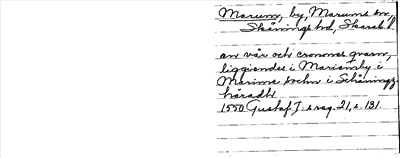 Marum, by, Marums sn,
Skånings hd, Skarab. l.
en vår och cronones qvarn,
liggiendes i Mariemby i
Marime sochn i Schåningz
häradt
1550 Gustaf I:s reg. 21, s. 131.